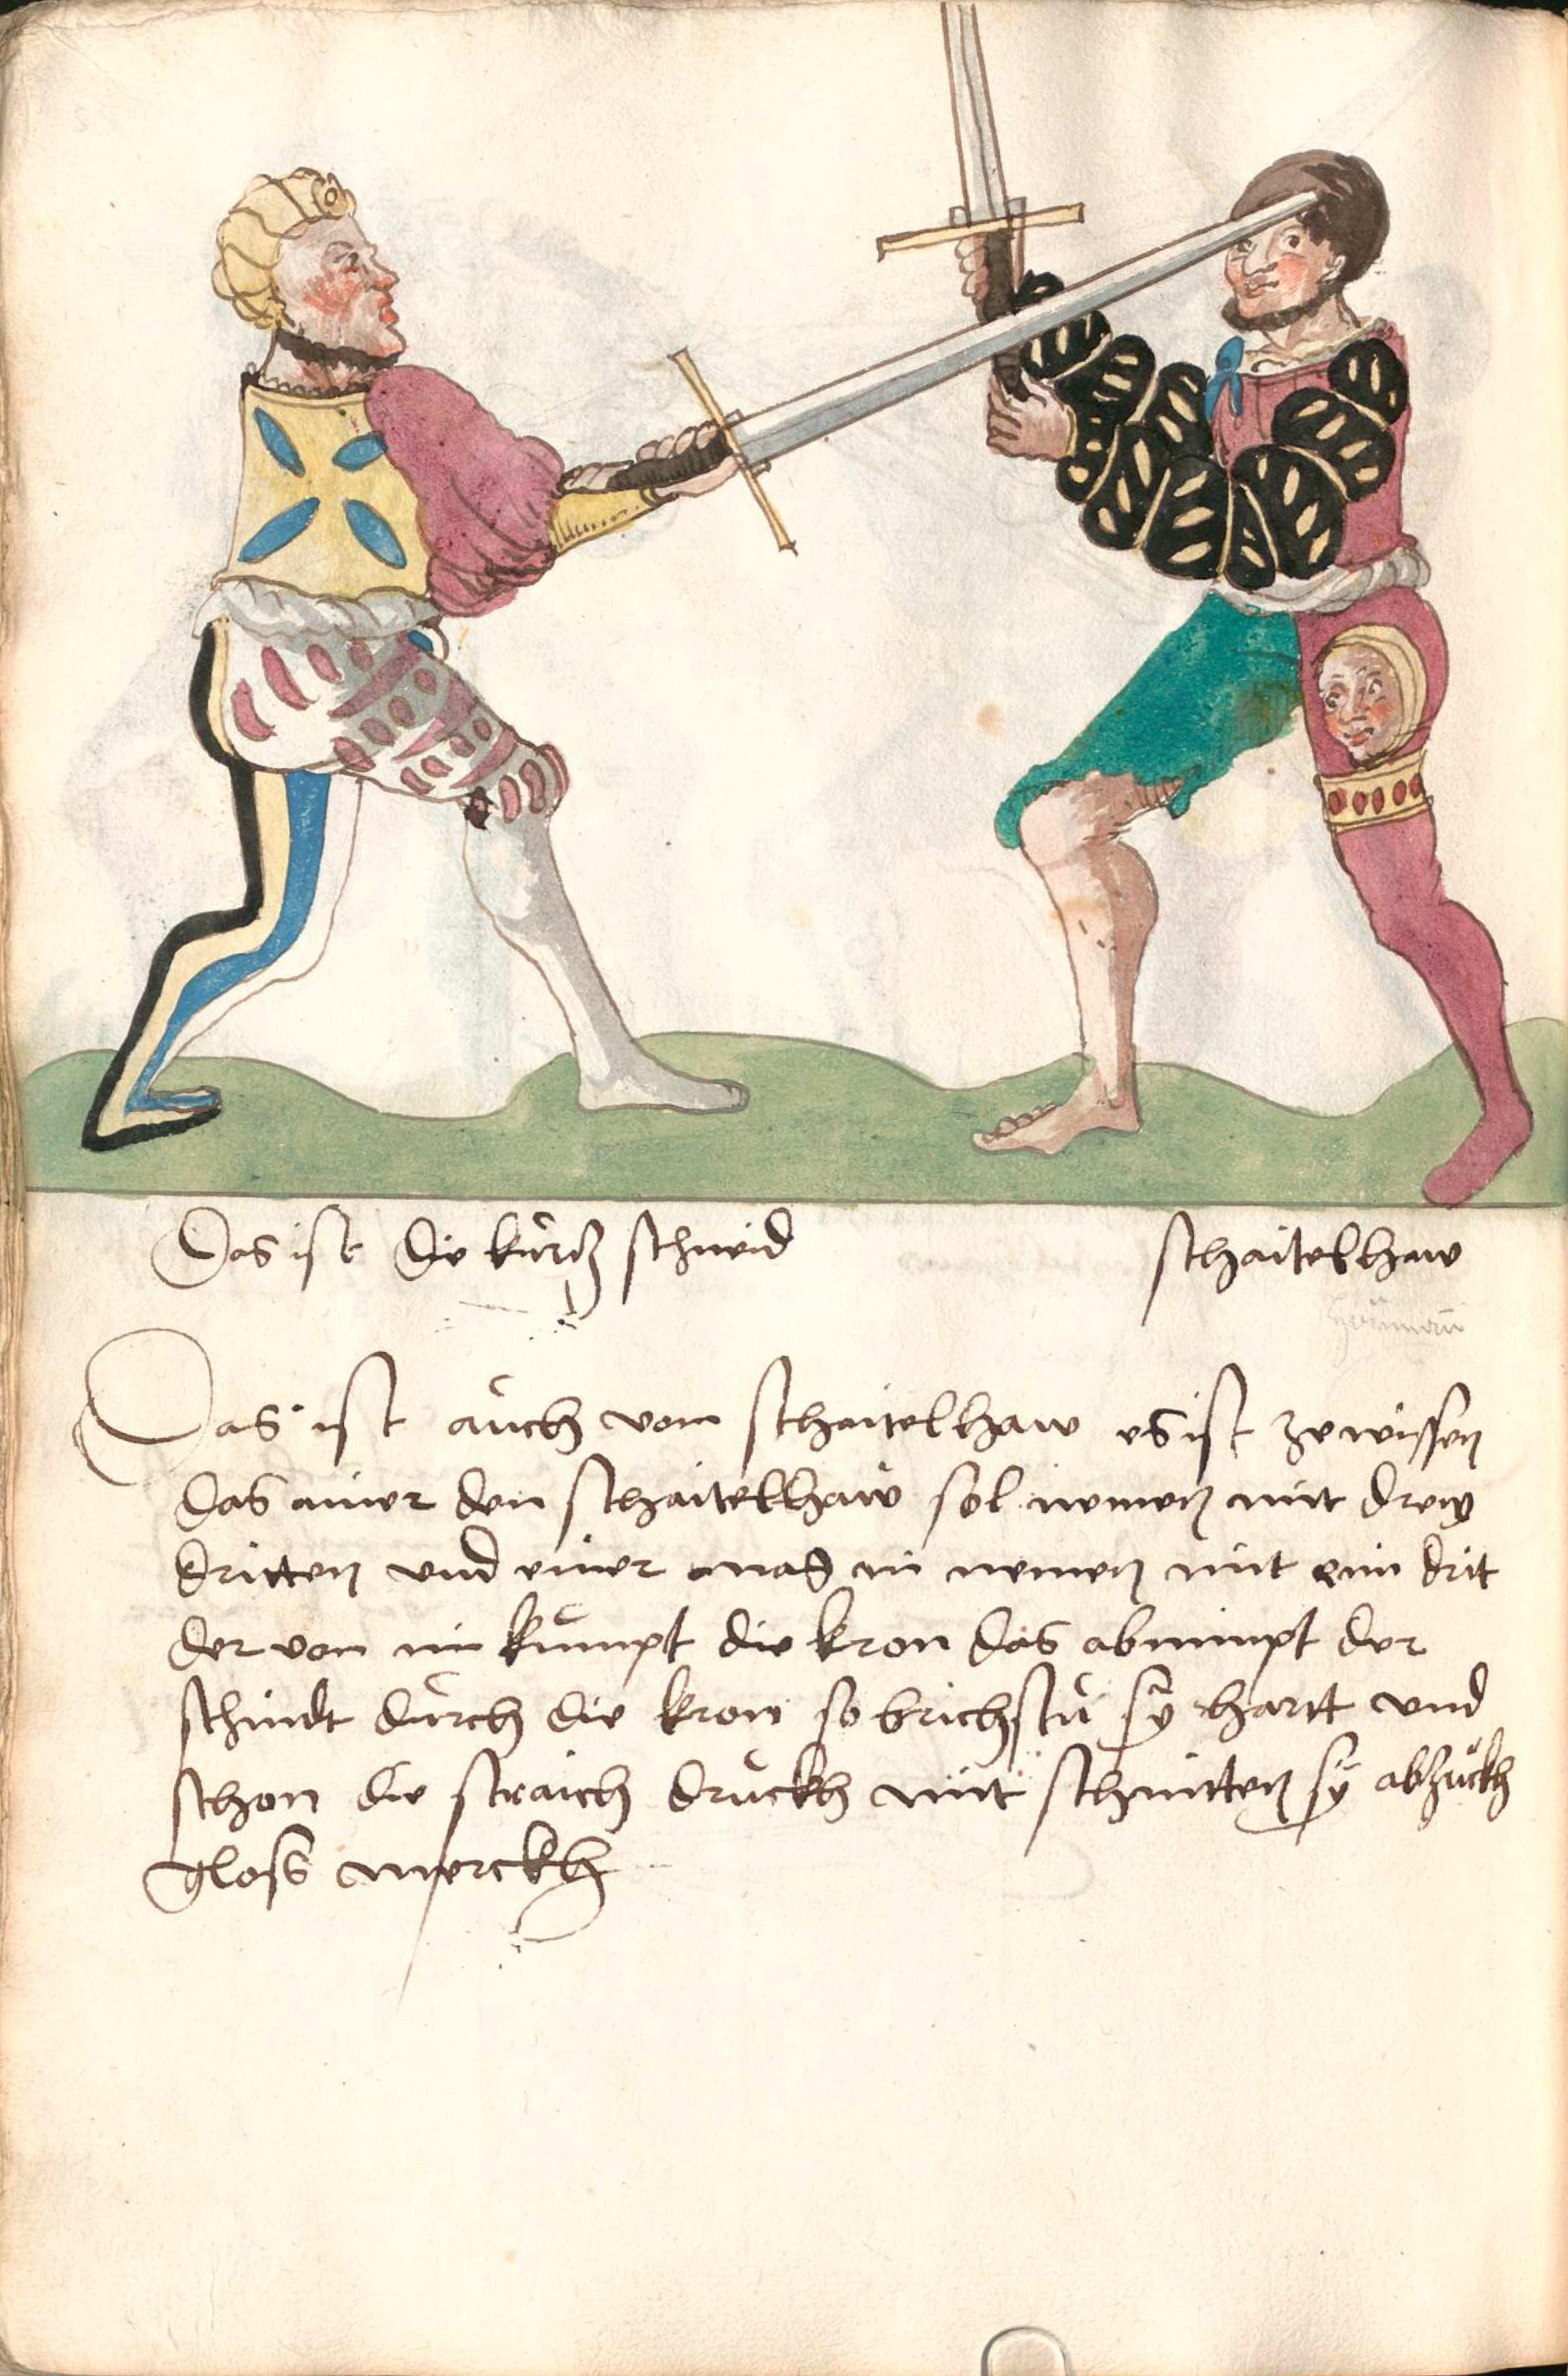 Das ist die kürcz schneid
schaitelhaw
Das ist auch vom schaitelhaw es ist ze wissen
das ainer den schaitelhaw sol nemen mit dreÿ
dritten vnd einer mag in nemen mit eim drit
der von im kumpt die kron das abnimpt der
schindt durch die kron so brichstu sÿ hartt vnd
schon die straich druckh mit schnitten sÿ abzuckh
gloss merckh